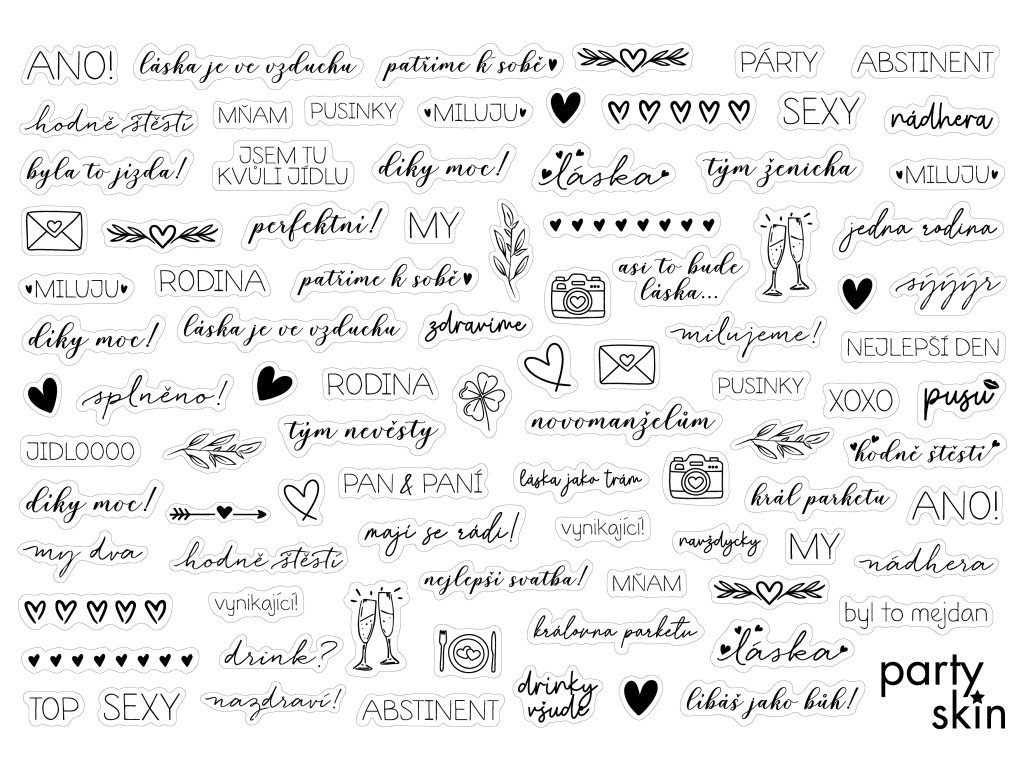 ANO!
láska je ve vzduchu
patříme k sobě
PÁRTY
ABSTINENT
hodně štěstí
MŇAM
PUSINKY
MILUJU
SEXY
nádhera
byla to jízda!
JSEM TU
KVŮLI JÍDLU
díky moc!
láska
tým ženicha
MILUJU
perfektní!
MY
jedna rodina
MILUJU
RODINA
patříme k sobě
asi to bude
láska...
sýýýýr
díky moc!
láska je ve vzduchu
zdravíme
milujeme!
NEJLEPŠÍ DEN
splněno!
RODINA
PUSINKY
XOXO
pusu
JIDLOOOO
tým nevěsty
novomanželům
hodně štěstí
díky moc!
PAN & PANÍ
láska jako trám
král parketu
ANO!
my dva
hodně štěstí
mají se rádi!
vynikající!
navždycky
MY
nádhera
vynikající!
nejlepší svatba!
MŇAM
byl to mejdan
drink?
královna parketu
láska
TOP
SEXY
nazdraví!
ABSTINENT
drinky
všude
líbáš jako bůh!
party
skin